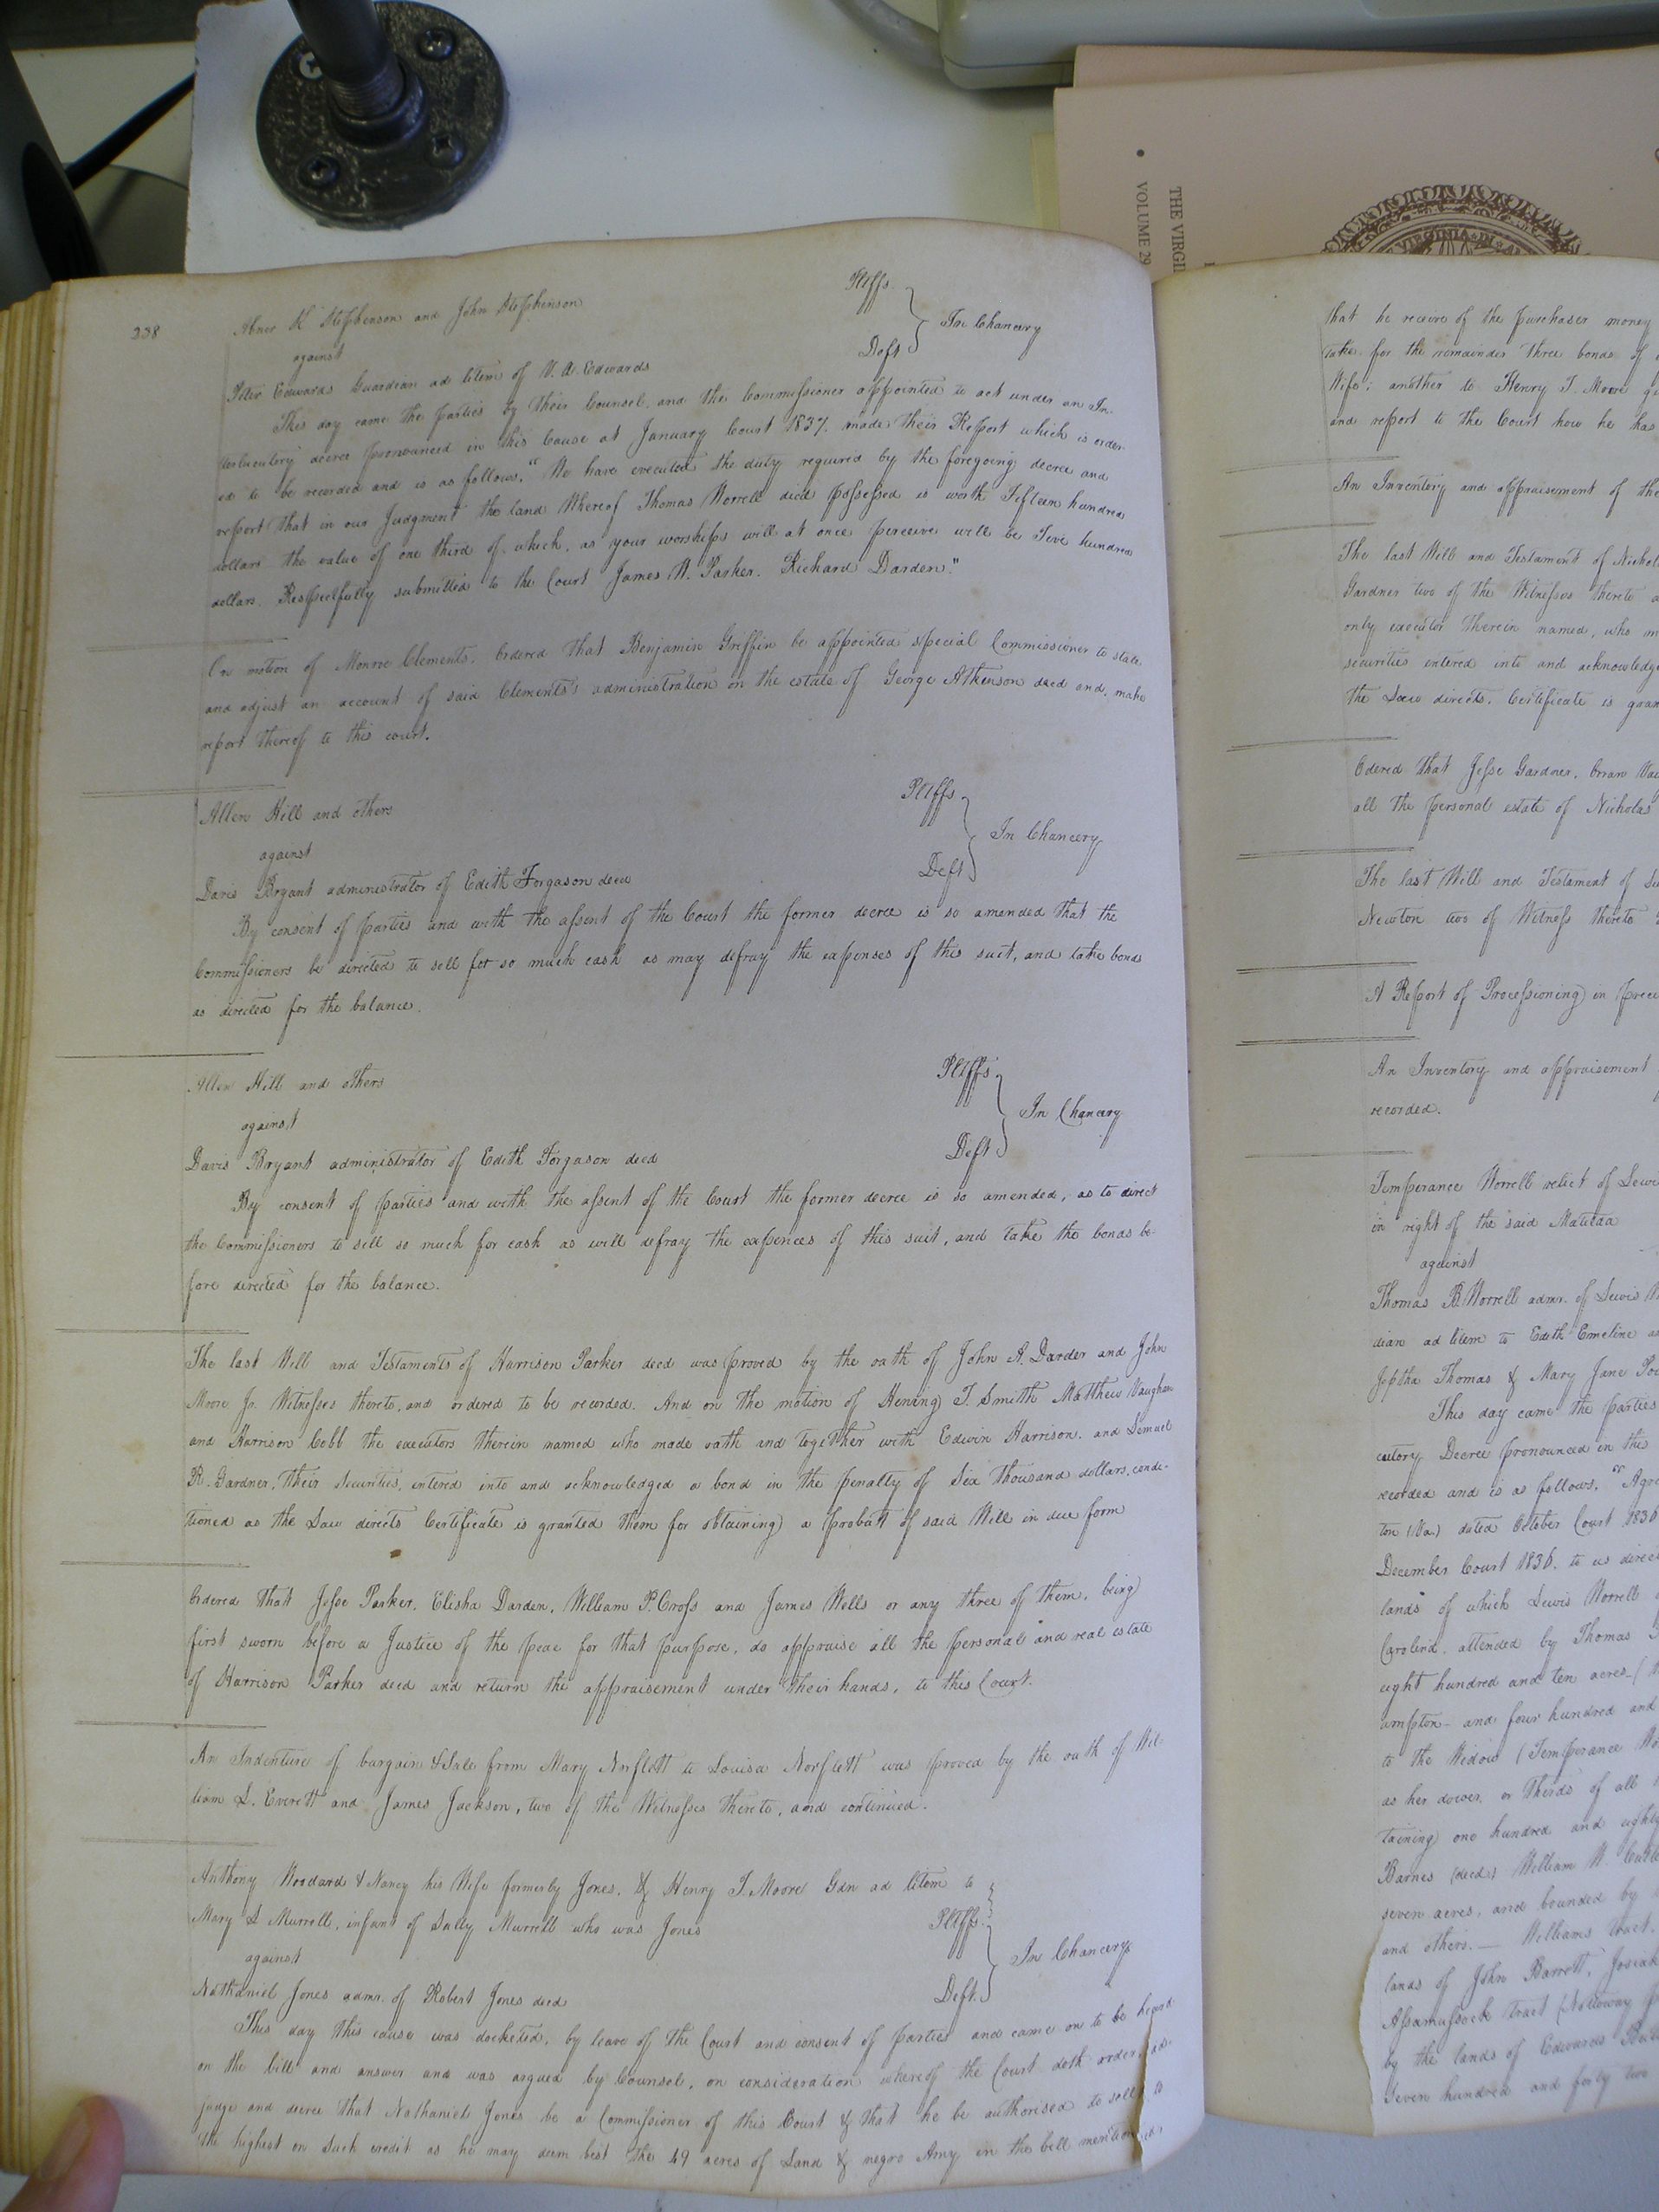 THE VIRGI
VOLUME 29
VIRGINIA
338
Abner K Stephenson and John Stephenson Pltffs
against In Chancery
Peter Edwards Guardian ad litem of V. A. Edwards Deft
This day came the parties by their Counsel, and the Commissioner appointed to act under an In-
terlocutory decree pronounced in this Cause at January Court 1837. made their Report which is order-
ed to be recorded and is as follows. "We have executed the duty required by the foregoing decree and
report that in our Judgment the land Whereof Thomas Worrell died possessed is worth Fifteen hundred
dollars the value of one third of which, as your worships will at once perceive will be Five hundred
dollars. Respectfully submitted to the Court James W. Parker. Richard Darden."
On motion of Monroe Clements. Ordered that Benjamin Griffin be appointed special Commissioner to state
and adjust an account of said Clements's administration on the estate of George Atkenson decd and, make
report thereof to this court.
Allen Hill and others Pltffs
against In Chancery
Davis Bryant administrator of Edith Forgason decd Deft
By consent of parties and with the assent of the Court the former decree is so amended that the
Commissioners be directed to sell for so much cash as may defray the expenses of this suit, and take bonds
as directed for the balance.
Allen Hill and others Pltffs
against In Chancery
Davis Bryant administrator of Edith Forgason decd Deft
By consent of parties and with the assent of the Court the former decree is so amended, as to direct
the Commissioners to sell so much for cash as will defray the expences of this suit, and take the bonds be-
fore directed for the balance.
The last Will and Testaments of Harrison Parker decd was proved by the oath of John A. Darder and John
Moore Jr. Witnesses thereto, and ordered to be recorded. And on the motion of Hening T. Smith Matthew Vaughan
and Harrison Cobb the executors therein named who made oath and together with Edwin Harrison. and Samuel
R. Gardner, their Securities, entered into and acknowledged a bond in the penalty of Six Thousand dollars, condi-
tioned as the Law directs Certificate is granted them for obtaining a probatt of said Will in due form
Ordered that Jesse Parker, Elisha Darden, William P. Cross and James Wells or any three of them, being
first sworn before a Justice of the peac for that purpose, do appraise all the personal and real estate
of Harrison Parker decd and return the appraisement under their hands, to this Court.
An Indenture of bargain & Sale from Mary Norflett to Louisa Norflett was proved by the oath of Wil-
liam L. Everett and James Jackson, two of the Witnesses thereto, and continued.
Anthony Woodard & Nancy his Wife formerly Jones, & Henry T. Moore Gdn ad litem to
Mary L Murrell, infant of Sally Murrell who was Jones Pltffs
against In Chancery
Nathaniel Jones admr. of Robert Jones decd Deft.
This day this cause was docketed, by leave of the Court and consent of parties and came on to be heard
on the bill and answer and was argued by Counsel, on consideration whereof the Court doth order, ad-
judge and decree that Nathaniel Jones be a Commissioner of this Court & that he be authorised to sell to
the highest on Such credit as he may deem best the 49 acres of Land & negro Amy in the bill mentioned
that he receive of the purchaser money
take for the remainder three bonds of
Wife; another to Henry T. Moore
and report to the Court how he has
An Inventory and appraisement of the
The last Will and Testament of
Gardner two of the Witnesses thereto
only executor therein named, who
securities entered into and acknowledge
the Law directs. Certificate is
Odered that Jesse Gardner,
all the personal estate of Nicholas
The last Will and Testament of
Newton two of Witness thereto
A Report of Processioning in
An Inventory and appraisement
recorded.
Temperance Worrell relict of Lewis
in right of the said Matilda
against
Thomas B. Worrell admr. of Lewis
dian ad litem to Edith Emeline
Jeptha Thomas & Mary Jane
This day came the parties
cutory Decree pronounced in the
recorded and is as follows, "
ton (Va.) dated October Court 1836
December Court 1836. to us
lands of which Lewis Worrell
Carolina. attended by Thomas
eight hundred and ten acres
ampton - and four hundred and
to the Widow (Temperance
as her dower, or Thirds of all
taining one hundred and eighty
Barnes (decd) William W.
seven acres, and bounded by
and others. — Williams tract.
lands of John Barrett, Josiah
Assamussock tract (Nottoway
by the lands of Edwards
Seven hundred and forty two